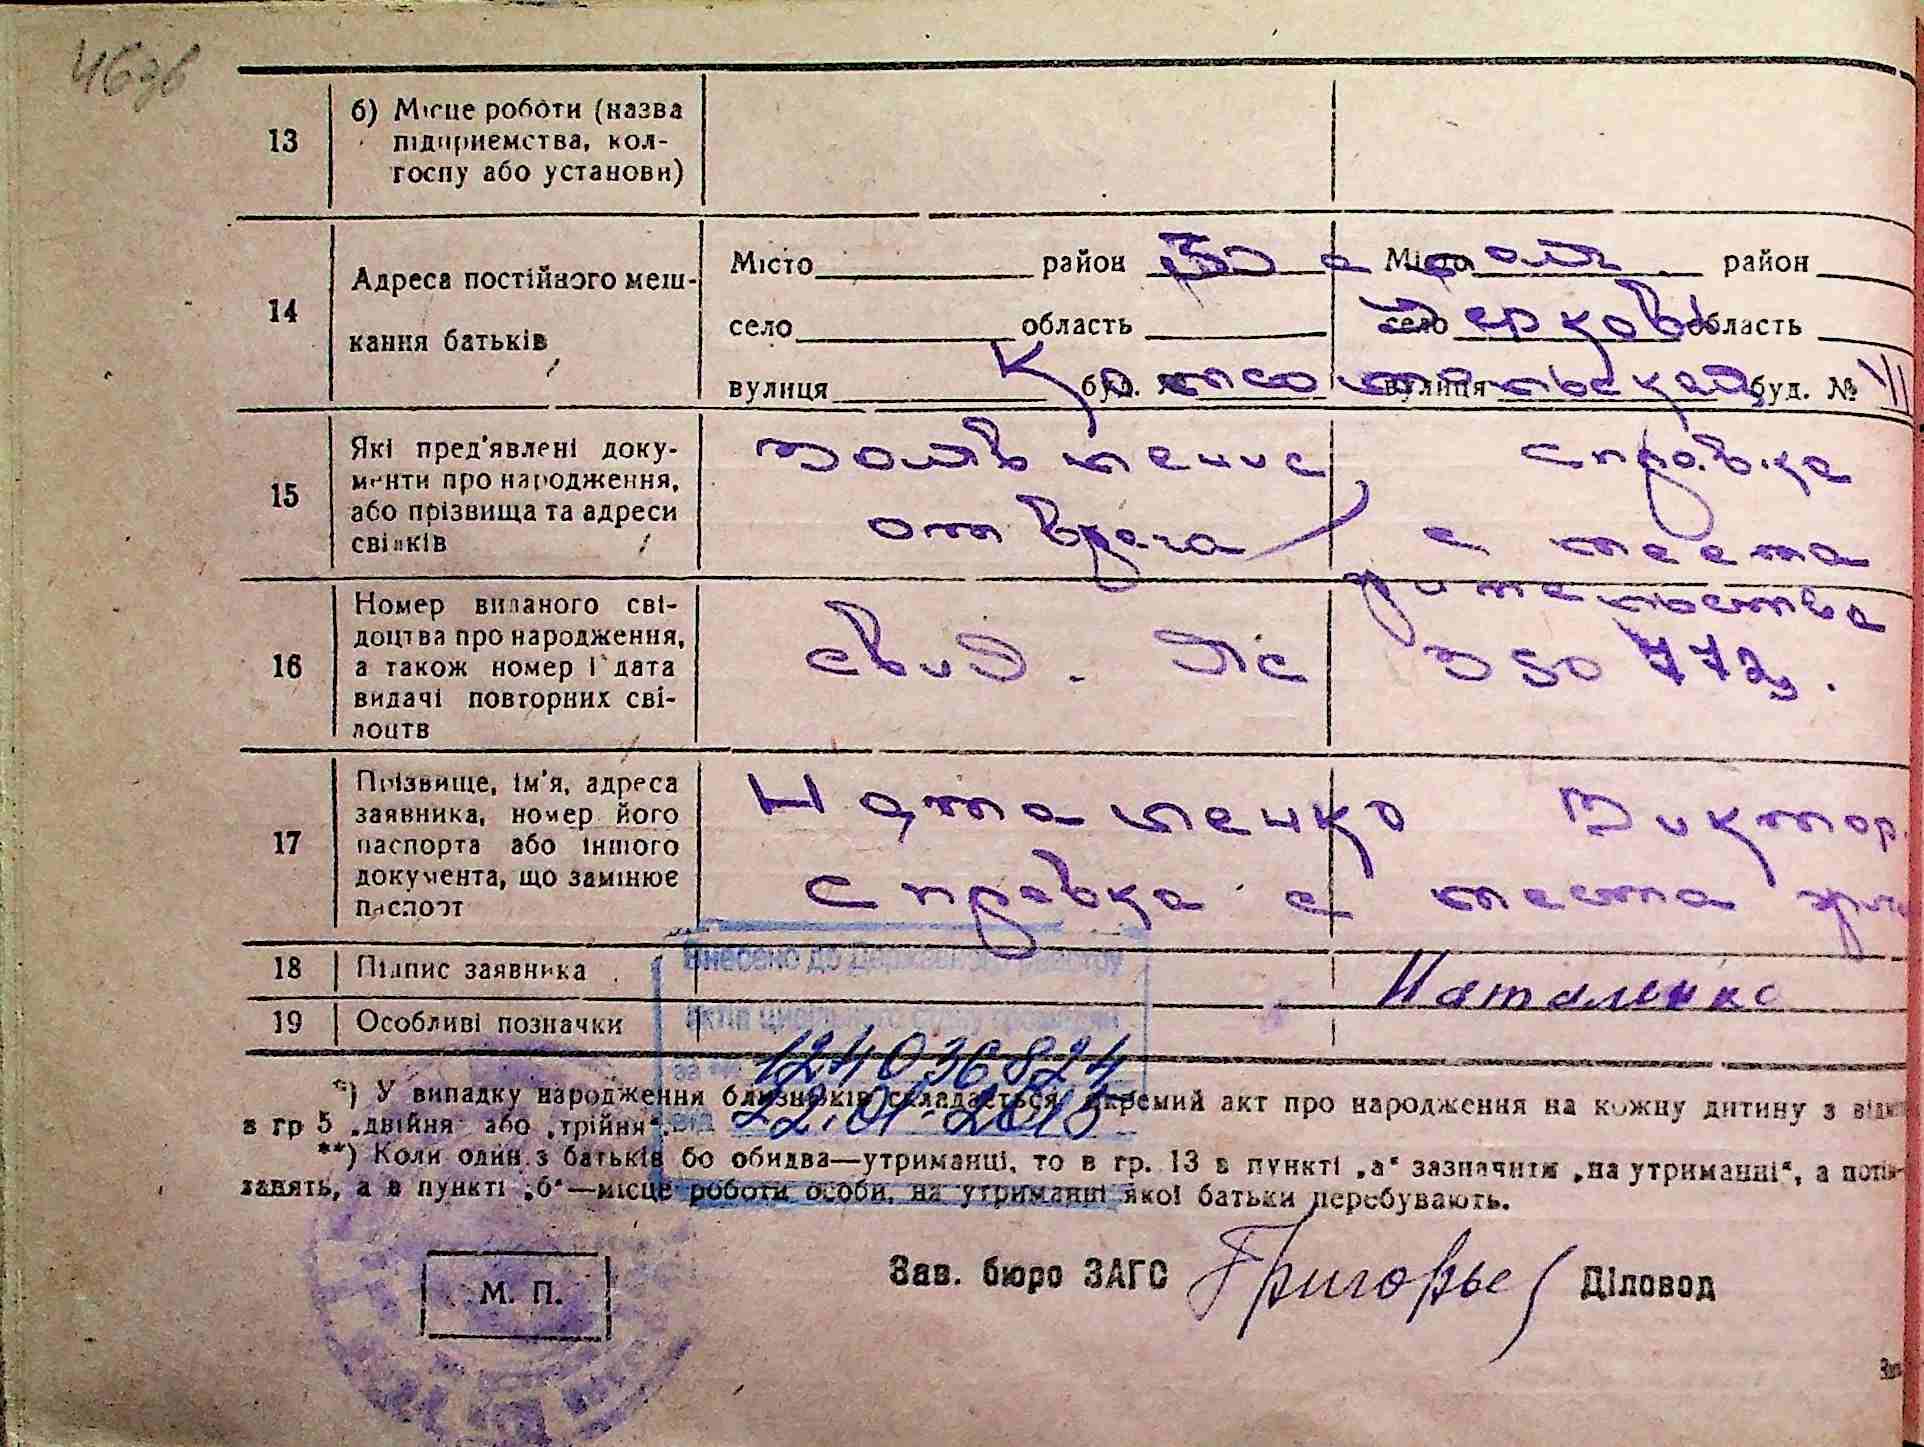 13 б) Місце роботи (назва
підприємства, кол-
госпу або установи)
Місто район Місто район
14 Адреса постійного меш-
кання батьків
село область село область
Дерков
вулиця буд. № вулиця буд. № VII
15 Які пред'явлені доку-
менти про народження,
або прізвища та адреси
свідків
справка
от врача с места
жительства
16 Номер виданого сві-
доцтва про народження,
а також номер і дата
видачі повторних сві-
доцтв
свид.
17 Прізвище, ім'я, адреса
заявника, номер його
паспорта або іншого
документа, що замінює
паспорт
Наталенко Виктор.
Справка с места
18 Підпис заявника Наталенко
19 Особливі позначки
Внесено до Державного реєстру
актів цивільного стану громадян
за № 124036824
від 22.01.2013
*) У випадку народження близнюків складається окремий акт про народження на кожну дитину з
в гр 5 „двійня“ або „трійня“.
**) Коли один з батьків бо обидва—утриманці, то в гр. 13 в пункті „а“ зазначити „на утриманні“, а
а в пункті „б“—місце роботи особи, на утриманні якої батьки перебувають.
М. П.
Зав. бюро ЗАГС Григорьев Діловод